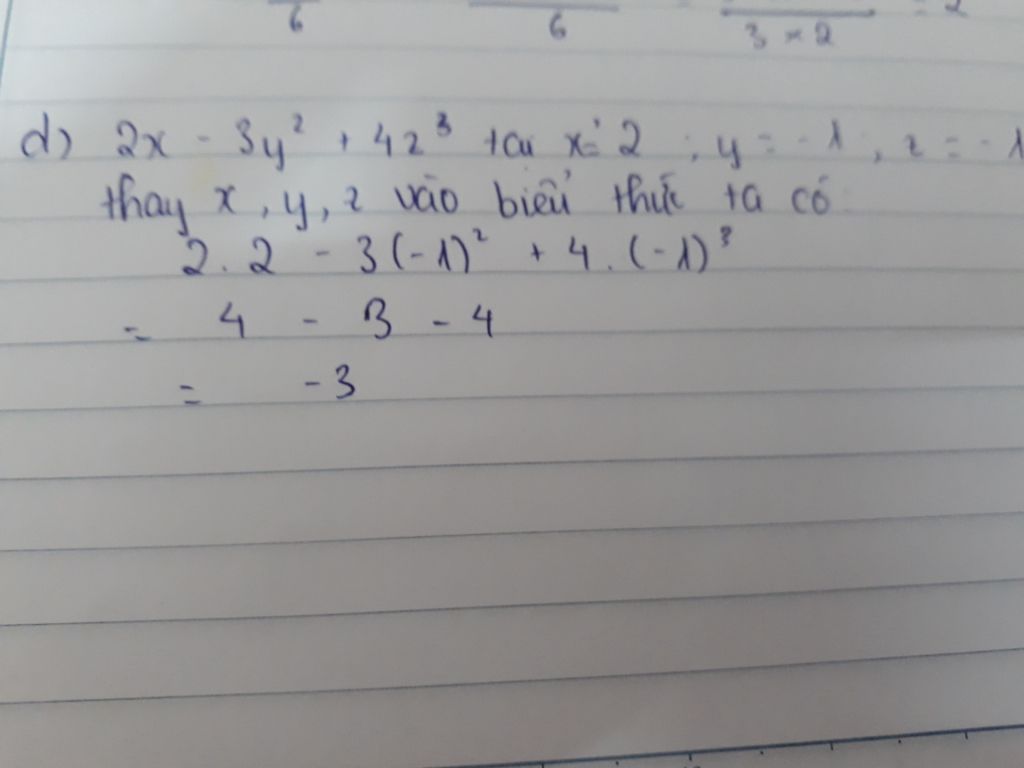 6 6 3 × 2 = 2
d) 2x - 3y² + 4z³ tại x = 2 ; y = -1 , z = -1
thay x, y, z vào biểu thức ta có
2 . 2 - 3(-1)² + 4 . (-1)³
= 4 - 3 - 4
= -3